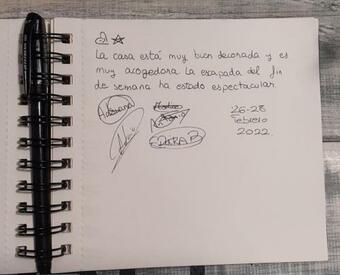 La casa está muy bien decorada y es
muy acogedora. La escapada del fin
de semana ha estado espectacular.
Adriana
26-28
Febrero
2022.